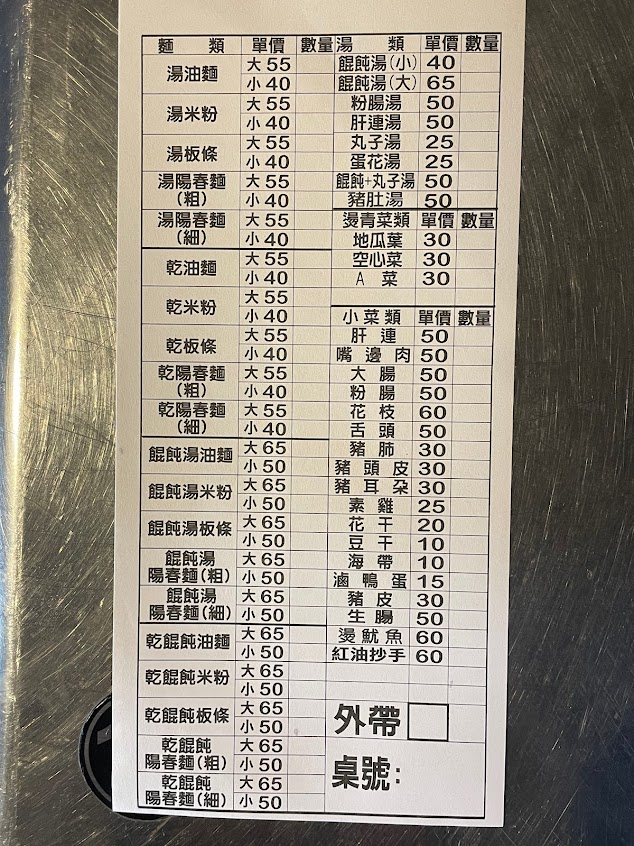 麵 類 單價 數量
湯油麵 大 55
小 40
湯米粉 大 55
小 40
湯板條 大 55
小 40
湯陽春麵(粗) 大 55
小 40
湯陽春麵(細) 大 55
小 40
乾油麵 大 55
小 40
乾米粉 大 55
小 40
乾板條 大 55
小 40
乾陽春麵(粗) 大 55
小 40
乾陽春麵(細) 大 55
小 40
餛飩湯油麵 大 65
小 50
餛飩湯米粉 大 65
小 50
餛飩湯板條 大 65
小 50
餛飩湯陽春麵(粗) 大 65
小 50
餛飩湯陽春麵(細) 大 65
小 50
乾餛飩油麵 大 65
小 50
乾餛飩米粉 大 65
小 50
乾餛飩板條 大 65
小 50
乾餛飩陽春麵(粗) 大 65
小 50
乾餛飩陽春麵(細) 大 65
小 50
湯 類 單價 數量
餛飩湯(小) 40
餛飩湯(大) 65
粉腸湯 50
肝連湯 50
丸子湯 25
蛋花湯 25
餛飩+丸子湯 50
豬肚湯 50
燙青菜類 單價 數量
地瓜葉 30
空心菜 30
A 菜 30
小菜類 單價 數量
肝 連 50
嘴 邊 肉 50
大 腸 50
粉 腸 50
花 枝 60
舌 頭 50
豬 肺 30
豬 頭 皮 30
豬 耳 朵 30
素 雞 25
花 干 20
豆 干 10
海 帶 10
滷 鴨 蛋 15
豬 皮 30
生 腸 50
燙 魷 魚 60
紅油抄手 60
外帶
桌號: